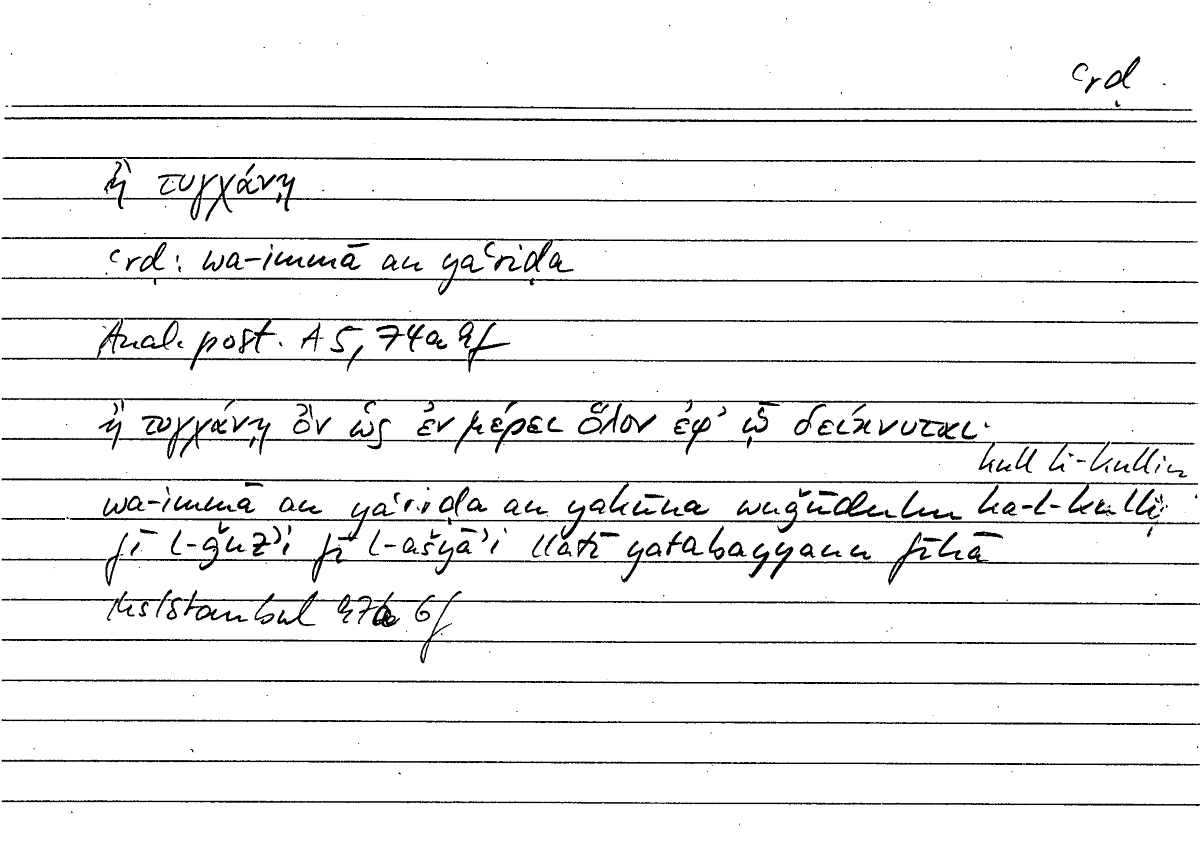 ʿrḍ
ἢ τυγχάνῃ
ʿrḍ: wa-immā an yaʿriḍa
Anal. post. A 5, 74a 9f
ἢ τυγχάνῃ ὂν ὡς ἐν μέρει ὅλον ἐφ' ᾧ δείκνυται·
kull li-kullin
wa-immā an yaʿriḍa an yakūna wuǧūduhu ka-l-kulli
fī l-ǧuzʾi fī l-ašyāʾi llatī yatabayyanu fīhā
Ms Istanbul 6f